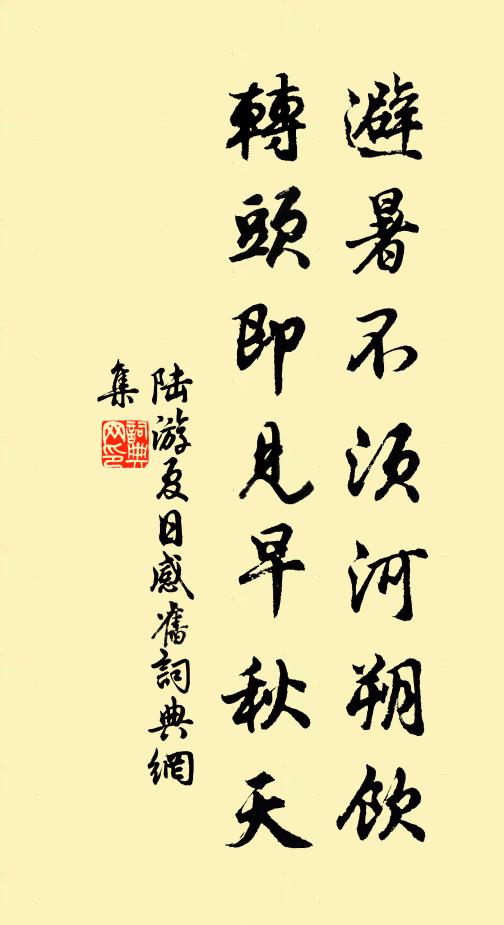 避暑不須河朔飲
轉頭即見早秋天
陆游夏日感舊詞典網
集
詞典
网印